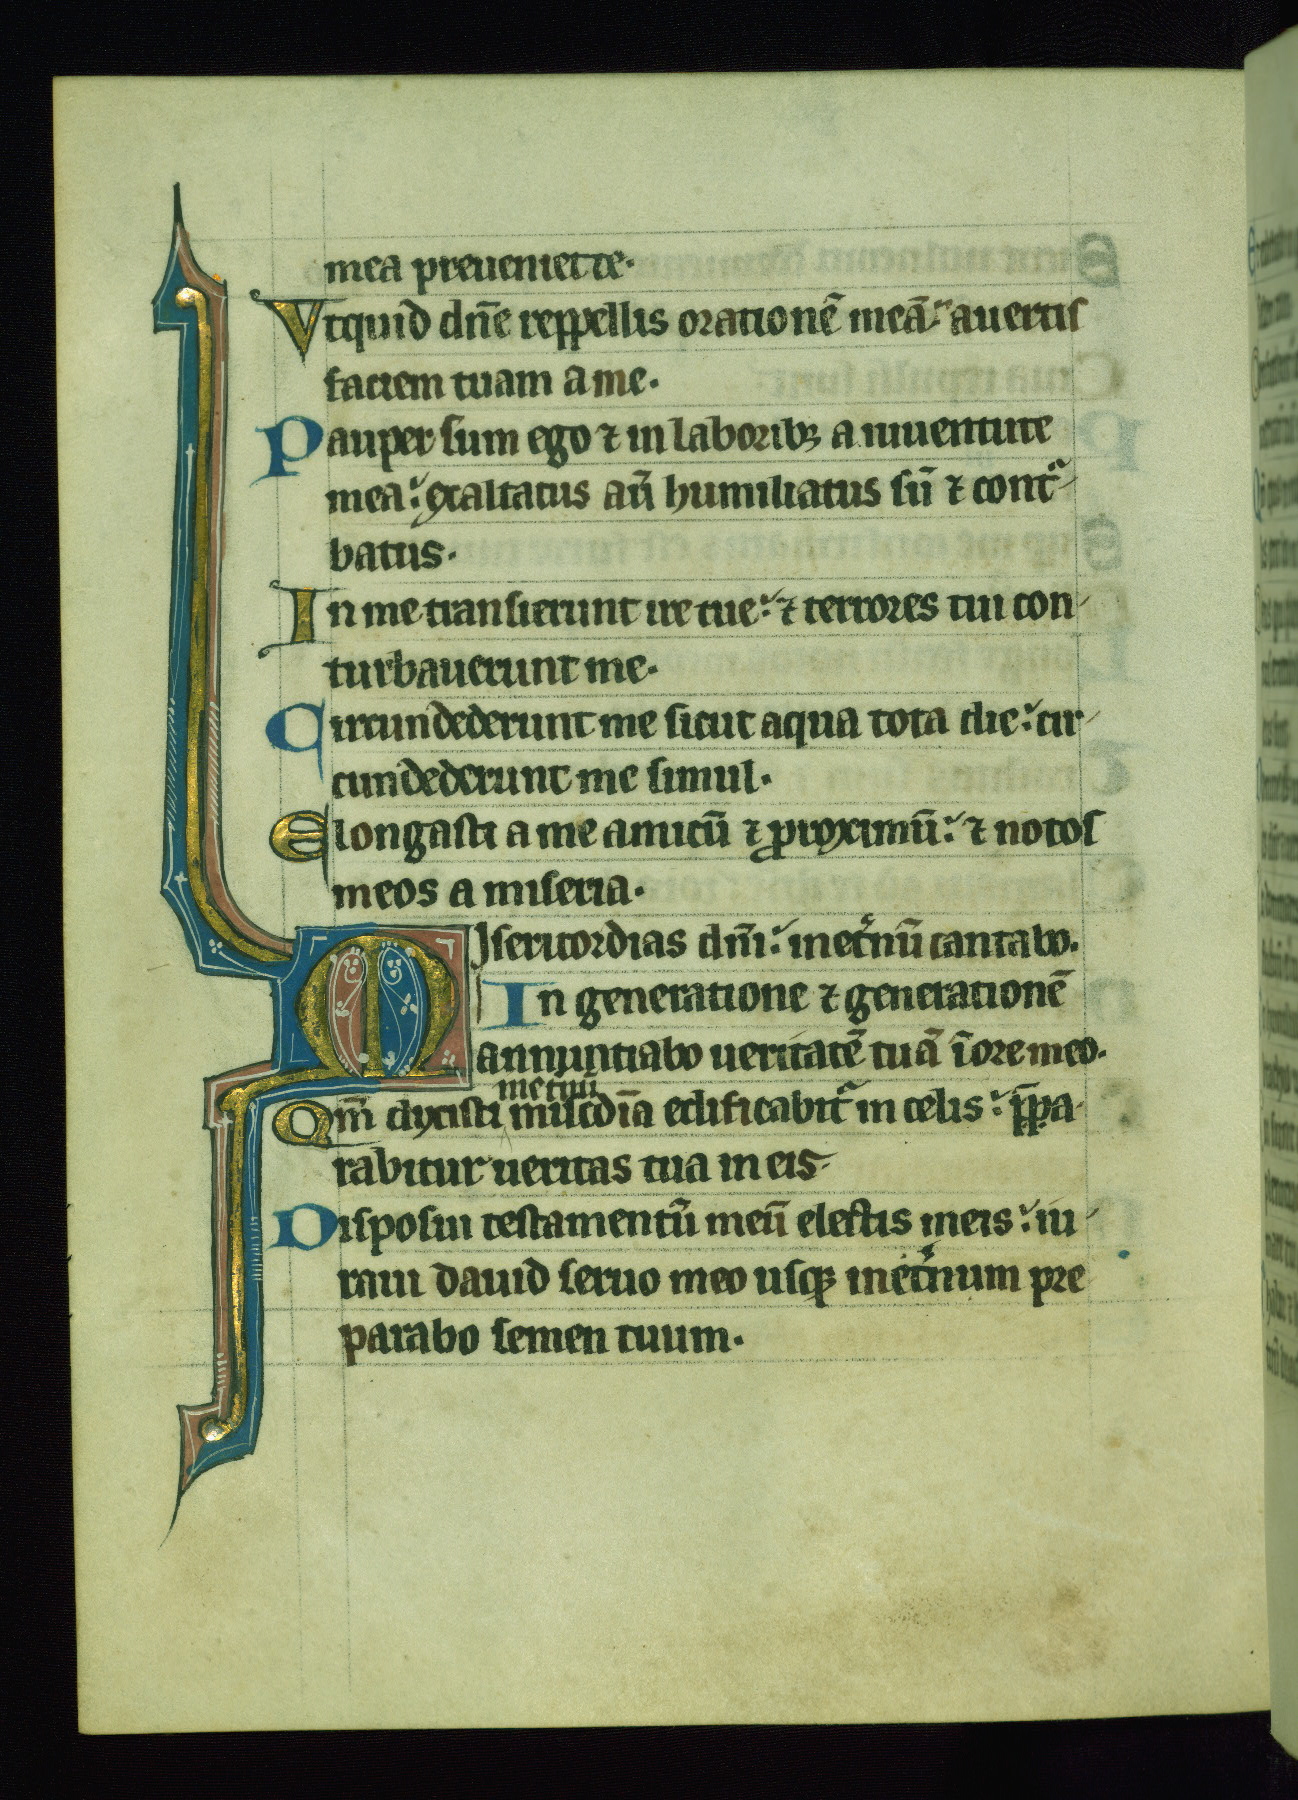 mea preueniet te.
Vtquid dn̄e reppellis orationē meā: auertis
faciem tuam a me.
Pauper sum ego ⁊ in laboribꝫ a iuuentute
mea: exaltatus aū humiliatus sū ⁊ cont᷑
batus.
In me transierunt ire tue: ⁊ terrores tui con-
turbauerunt me.
Circundederunt me sicut aqua tota die: cir-
cundederunt me simul.
Elongasti a me amicū ⁊ proximū: ⁊ notos
meos a miseria.
Misericordias dn̄i: inet͛nū cantabo.
In generatione ⁊ generationē
annuntiabo ueritatē tuā ī ore meo.
inet͛nū
Qm̄ dixisti mīscdīa edificabit᷑ in celis: p̄pa-
rabitur ueritas tua in eis.
Disposui testamentū meū electis meis: iu-
raui dauid seruo meo usqꝫ inet͛num pre
parabo semen tuum.